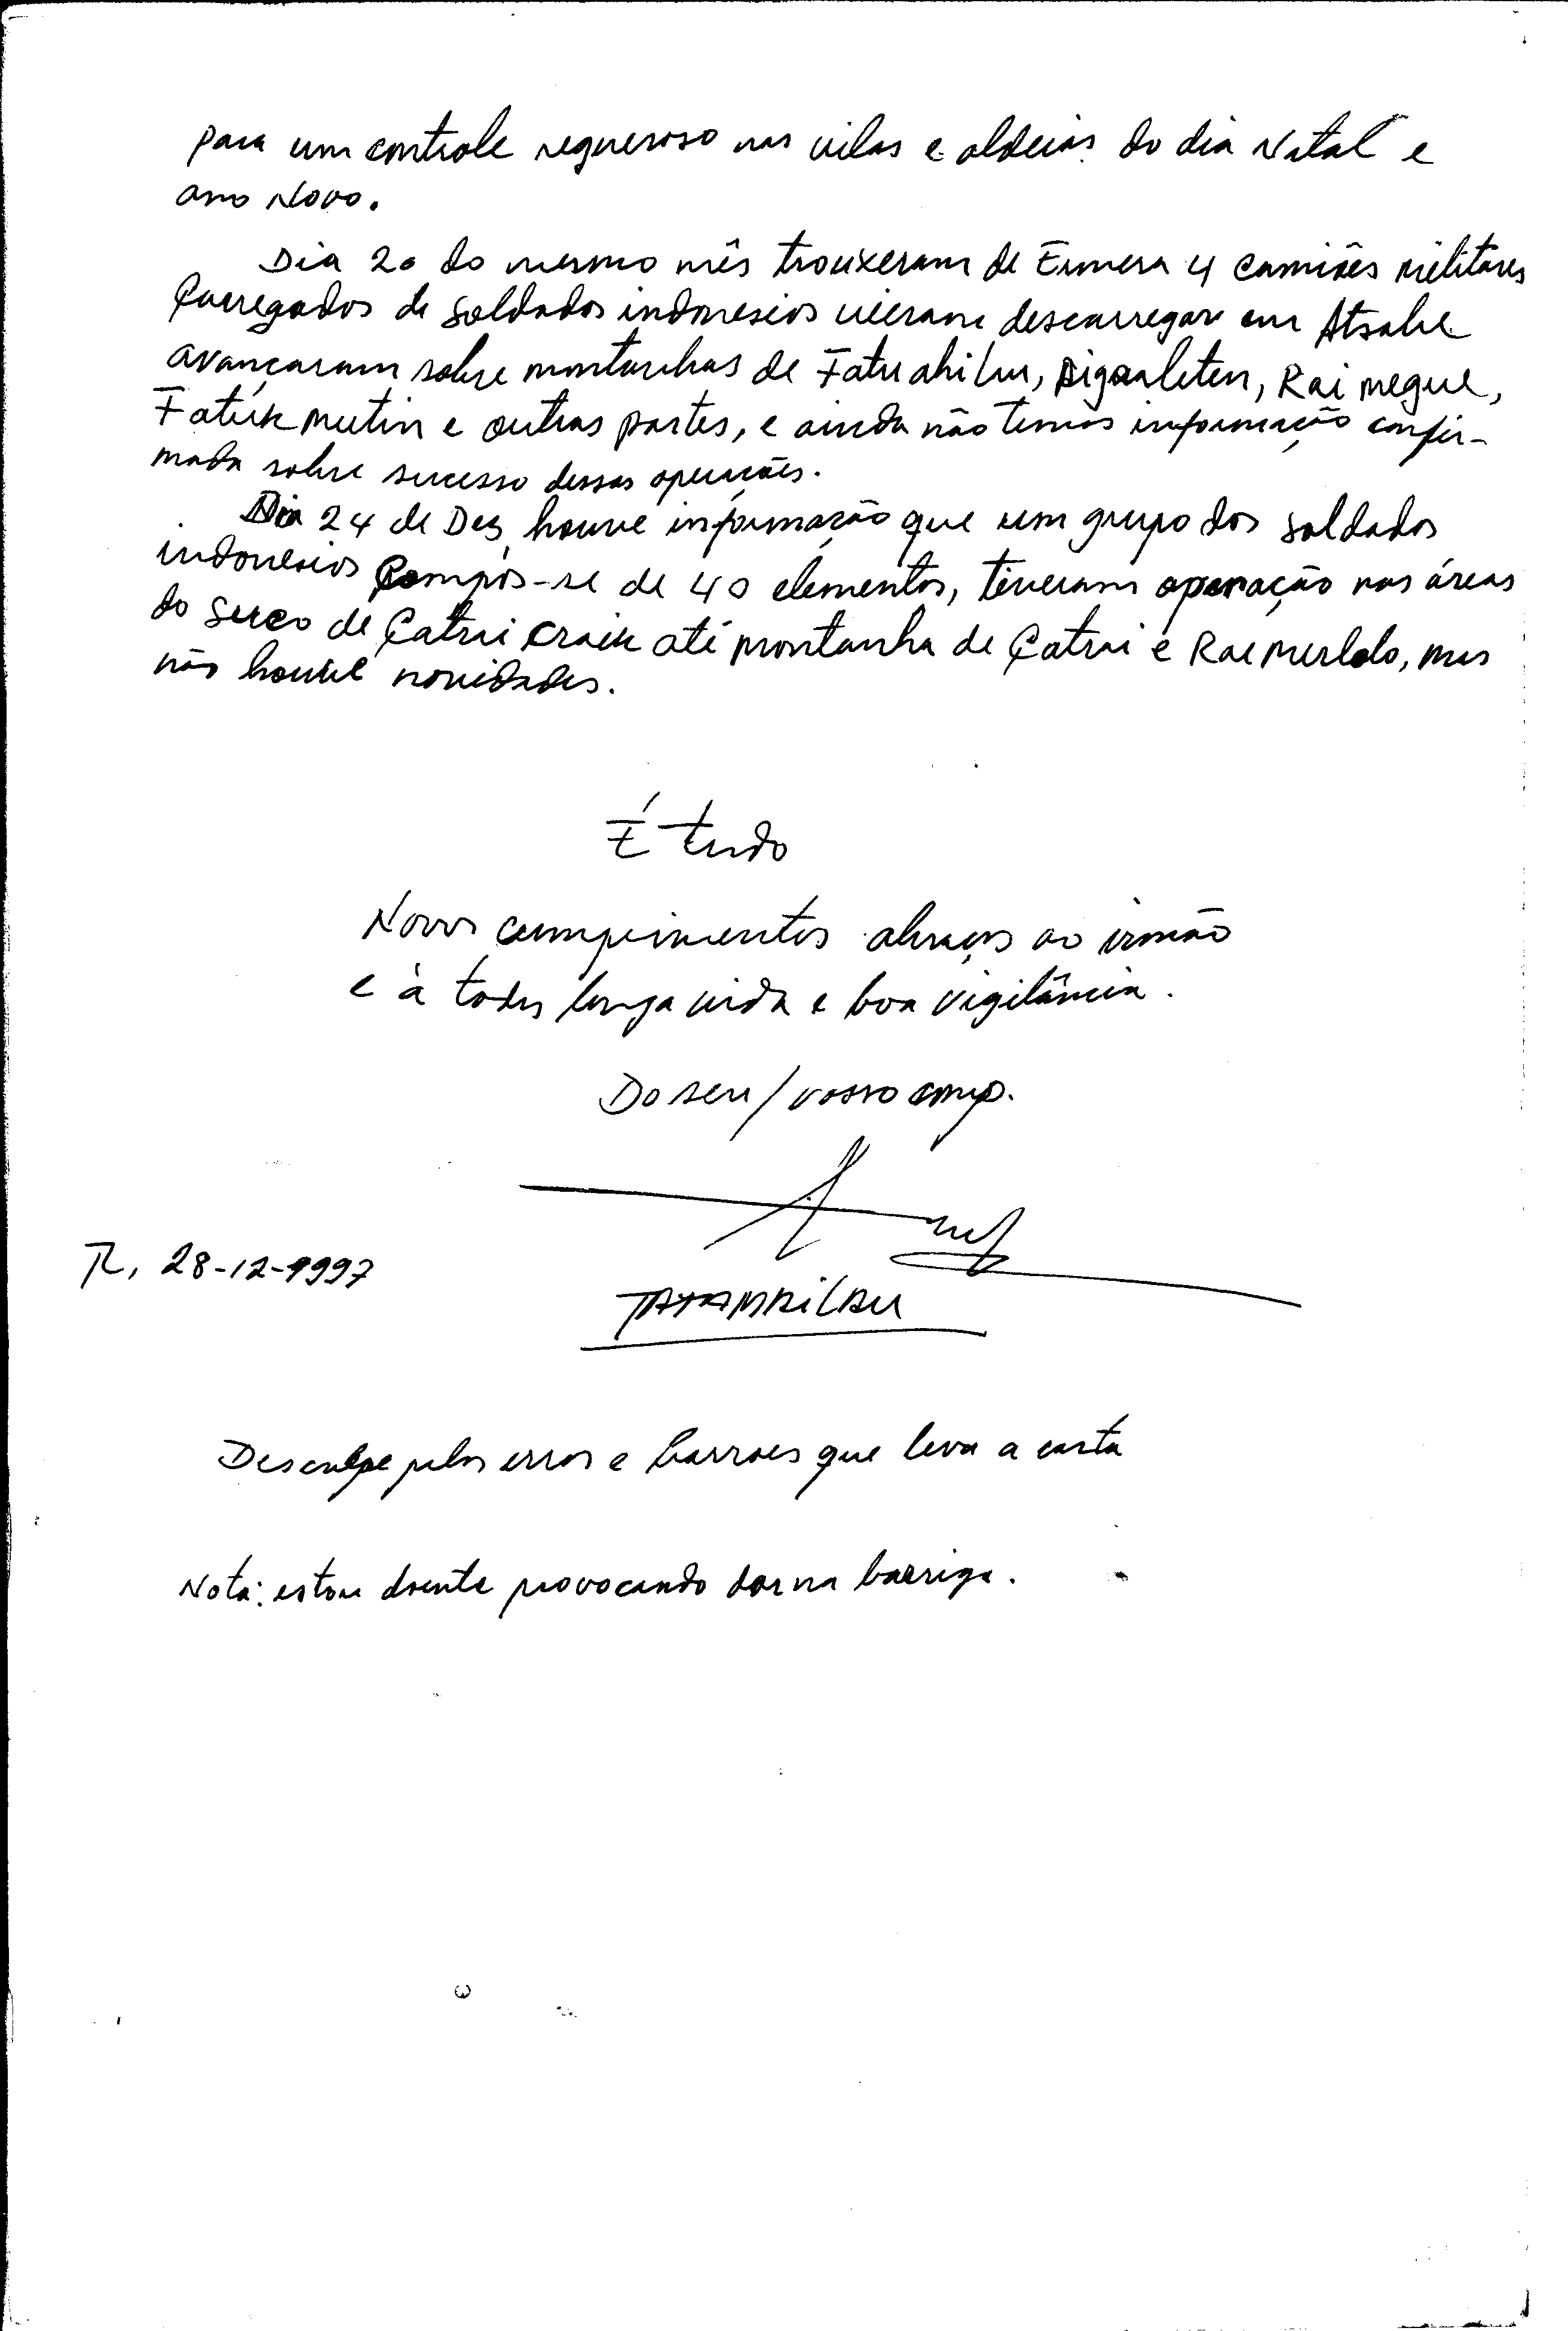 para um controle regueroso nas vilas e aldeias do dia Natal e
ano Novo.
Dia 20 do mesmo mês trouxeram de Ermera 4 camiões militares
Carregados de soldados indonesios vieram descarregar em Atsabe
avançaram sobre montanhas de Fatuahilu, Rai megue,
Fatuk mutin e outras partes, e ainda não temos informação confir-
mada sobre sucesso dessas operações.
Dia 24 de Dez houve informação que um grupo dos soldados
indonesios Compôs-se de 40 elementos, tiveram operação nas áreas
do suco de Catrai Craik até montanha de Catrai e mas
não houve novidades.
É tudo
Novos cumprimentos abraços ao irmão
e à todos longa vida e boa vigilância.
Do seu / vosso comp.
R, 28-12-1997
TATAMAILAU
Desculpe pelos erros e borroes que leva a carta
Nota: estou doente provocando dor na barriga.